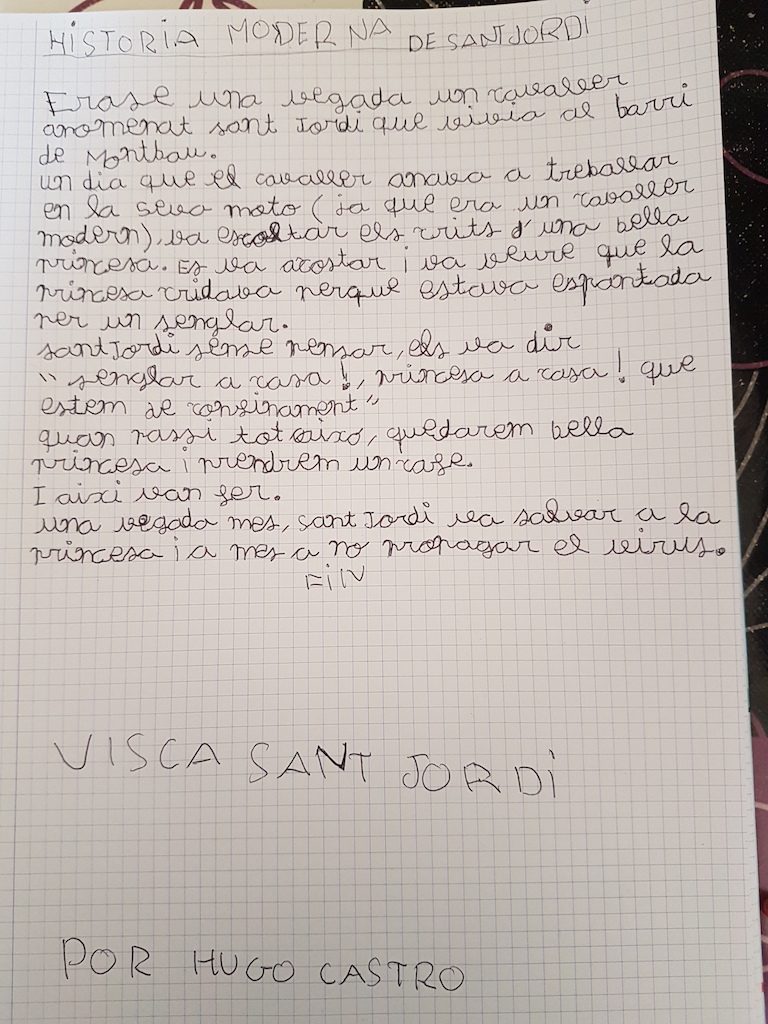 HISTORIA MODERNA DE SANT JORDI
Erase una vegada un cavaller
anomenat sant Jordi que vivia al barri
de Montbau.
un dia que el cavaller anava a treballar
en la seva moto (ja que era un cavaller
modern), va escoltar els crits d'una bella
princesa. Es va acostar i va veure que la
princesa cridava perque estava espantada
per un senglar.
sant Jordi sense pensar, els va dir
"senglar a casa!, princesa a casa! que
estem de confinament"
quan passi tot aixo, quedarem bella
princesa i prendrem un cafe.
I aixi van fer.
una vegada mes, sant Jordi va salvar a la
princesa i a mes a no propagar el virus.
FiN
VISCA SANT JORDI
POR HUGO CASTRO